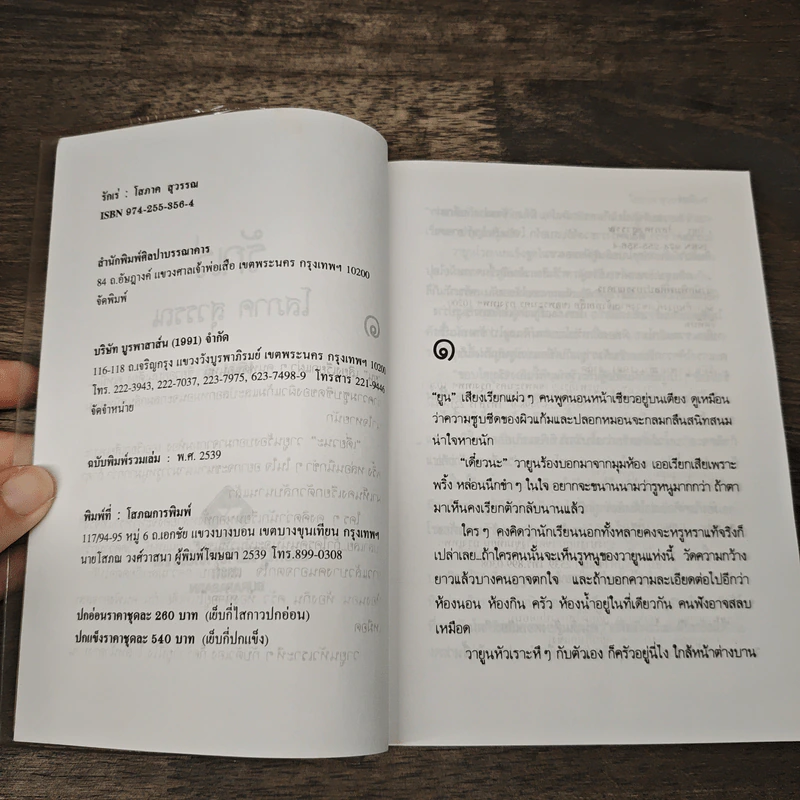 รักเร่ : โสภาค สุวรรณ
ISBN 974-255-356-4
สำนักพิมพ์ศิลปาบรรณาคาร
84 ถ.อัษฎางค์ แขวงศาลเจ้าพ่อเสือ เขตพระนคร กรุงเทพฯ 10200
จัดพิมพ์
บริษัท บูรพาสาส์น (1991) จำกัด
116-118 ถ.เจริญกรุง แขวงวังบูรพาภิรมย์ เขตพระนคร กรุงเทพฯ 10200
โทร. 222-3943, 222-7037, 223-7975, 623-7498-9 โทรสาร 221-9446
จัดจำหน่าย
ฉบับพิมพ์รวมเล่ม : พ.ศ. 2539
พิมพ์ที่ : โสภณการพิมพ์
117/94-95 หมู่ 6 ถ.เอกชัย แขวงบางบอน เขตบางขุนเทียน กรุงเทพฯ
นายโสภณ วงศ์วาสนา ผู้พิมพ์โฆษณา 2539 โทร.899-0308
ปกอ่อนราคาชุดละ 260 บาท (เย็บกี่ไสกาวปกอ่อน)
ปกแข็งราคาชุดละ 540 บาท (เย็บกี่ปกแข็ง)
๑
“ยูน” เสียงเรียกแผ่ว ๆ คนพูดนอนหน้าเซียวอยู่บนเตียง ดูเหมือน
ว่าความซูบซีดของผิวแก้มและปลอกหมอนจะกลมกลืนสนิทสนม
น่าใจหายนัก
“เดี๋ยวนะ” วายูนร้องบอกมาจากมุมห้อง เออเรียกเสียเพราะ
พริ้ง หล่อนนึกขำ ๆ ในใจ อยากจะขนานนามว่ารูหนูมากกว่า ถ้าตา
มาเห็นคงเรียกตัวกลับนานแล้ว
ใคร ๆ คงคิดว่านักเรียนนอกทั้งหลายคงจะหรูหราแท้จริงก็
เปล่าเลย..ถ้าใครคนนั้นจะเห็นรูหนูของวายูนแห่งนี้ วัดความกว้าง
ยาวแล้วบางคนอาจตกใจ และถ้าบอกความละเอียดต่อไปอีกว่า
ห้องนอน ห้องกิน ครัว ห้องน้ำอยู่ในที่เดียวกัน คนฟังอาจสลบ
เหมือด
วายูนหัวเราะหึ ๆ กับตัวเอง ก็ครัวอยู่นี่ไง ใกล้หน้าต่างบาน